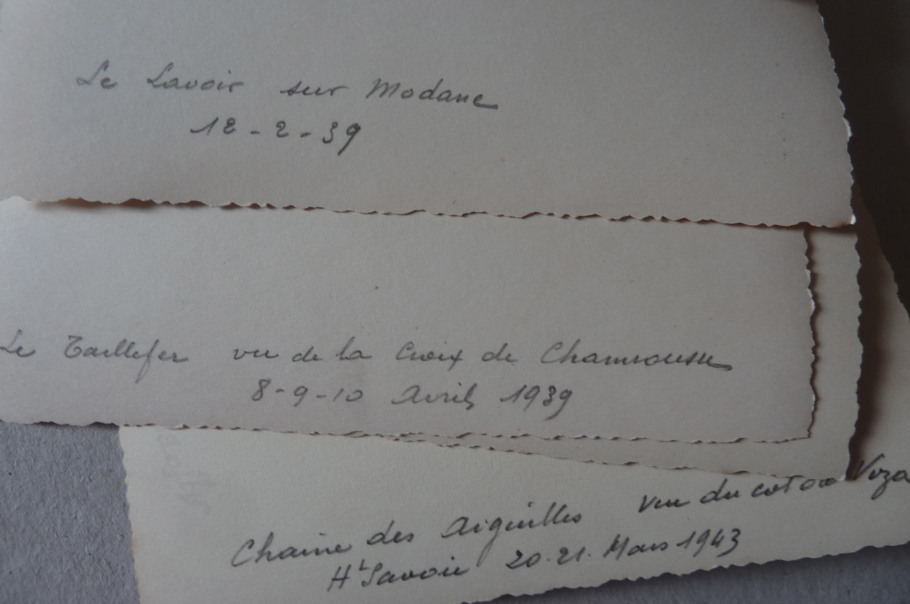 Le Lavoir sur Modane
12-2-39
Le Taillefer vu de la Croix de Chamrousse
8-9-10 Avril 1939
Chaine des Aiguilles vu du col de Voza
Ht Savoie 20-21. Mars 1943